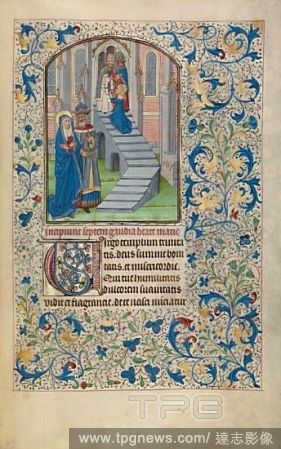 Incipiunt septem gaudia beate marie
Virgo templum trinita
tis. deus summe boni
tatis. et misericordie.
Qui tue humilitatis
dulcorem suavitatis
vidit et fragrancie. de te nasci
TPG
www.tpgnews.com/ 達志影像